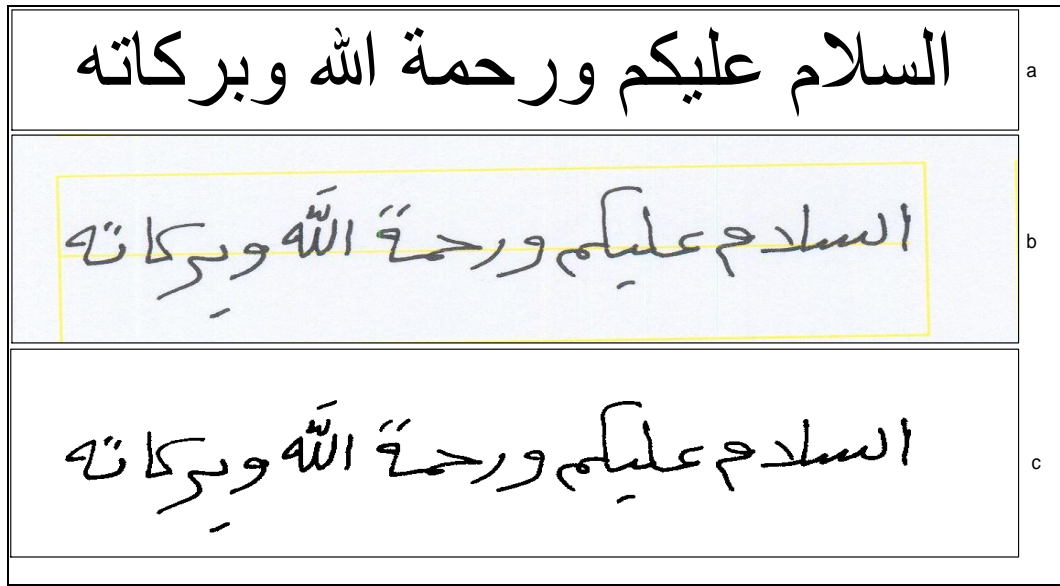 السلام عليكم ورحمة الله وبركاته a
السلام عليكم ورحمة الله وبركاته b
السلام عليكم ورحمة الله وبركاته c